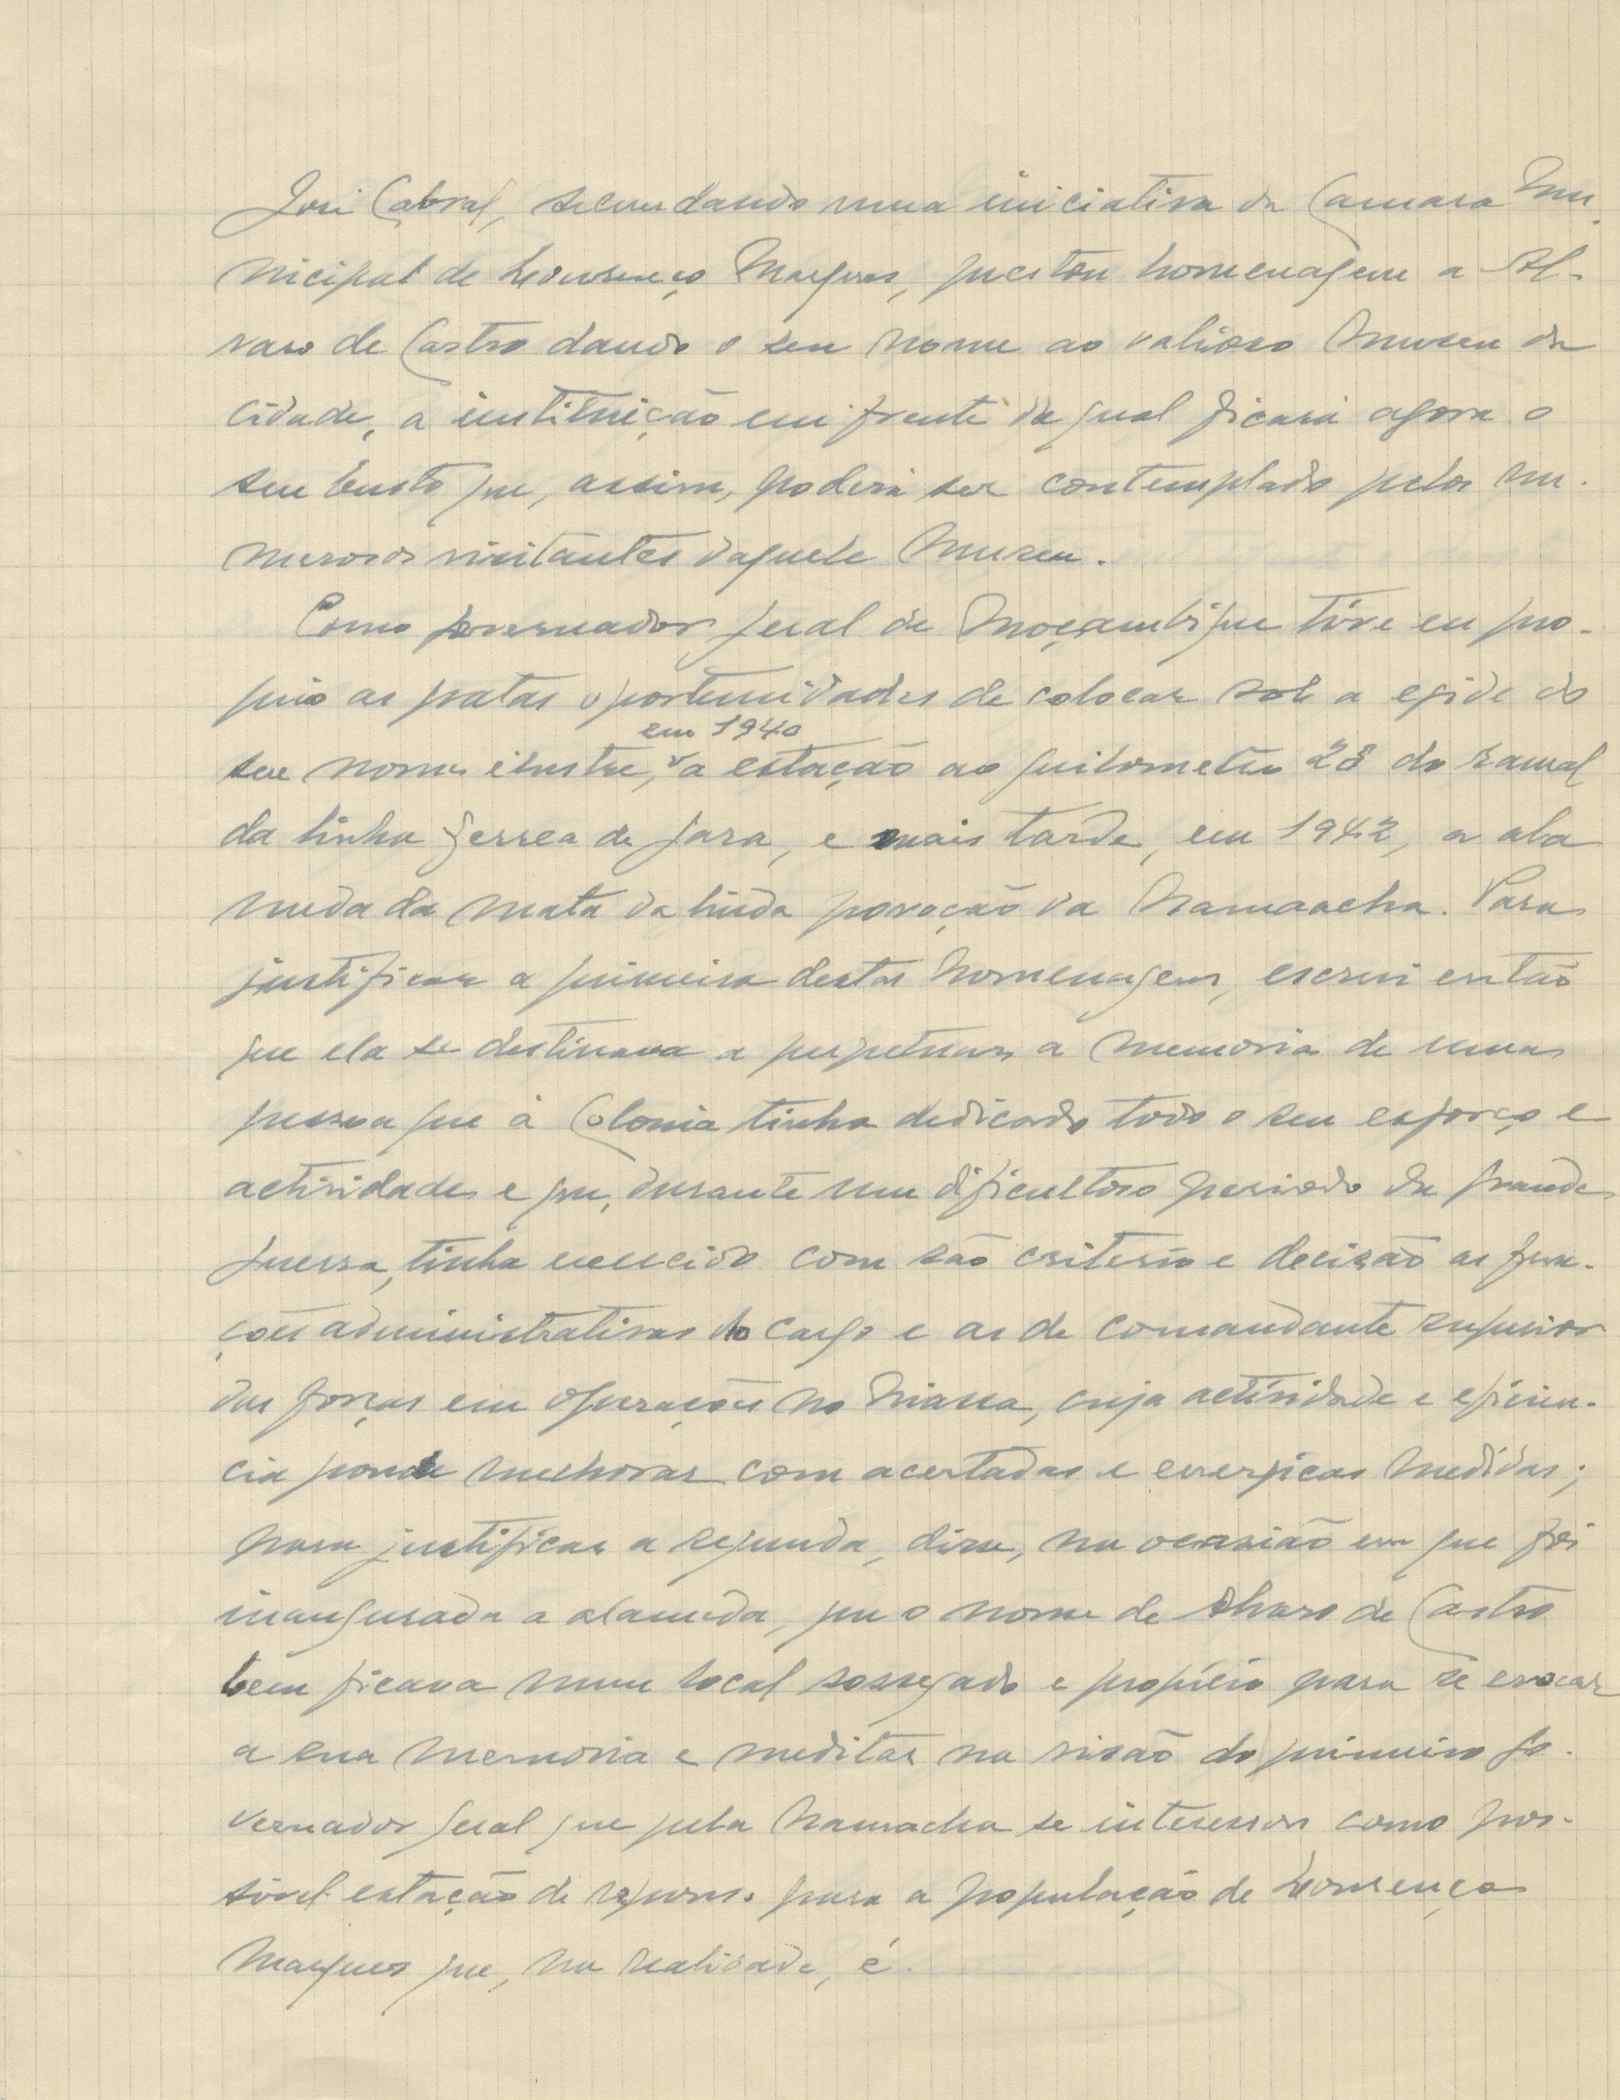 José Cabral, secundando uma iniciativa da Camara Mu-
nicipal de Lourenço Marques, prestou homenagem a Al-
varo de Castro dando o seu nome ao valioso Museu da
cidade, a instituição em frente da qual ficará agora o
seu busto que, assim, poderá ser contemplado pelos nu-
merosos visitantes daquele Museu.
Como governador geral de Moçambique tive eu pro-
prio as gratas oportunidades de colocar sob a egide do
em 1940
seu nome ilustre, a estação ao quilometro 28 do ramal
da linha ferrea de Gaza, e mais tarde, em 1942, a ala
meda da mata da linda povoação da Namaacha. Para
justificar a primeira destas homenagens, escrevi então
que ela se destinava a perpetuar a memoria de uma
pessoa que à Colonia tinha dedicado todo o seu esforço e
actividade e que, durante um dificultoso periodo da grande
guerra, tinha exercido com são criterio e decisão as fun-
ções administrativas do cargo e as de comandante superior
das forças em operações no Niassa, cuja actividade e eficien-
cia poude melhorar com acertadas e energicas medidas;
para justificar a segunda, disse, na ocasião em que foi
inaugurada a alameda, que o nome de Alvaro de Castro
bem ficava num local sossegado e propicio para se evocar
a sua memoria e meditar na visão do primeiro go-
vernador geral que pela Namaacha se interessou como pos-
sivel estação de repouso para a população de Lourenço
Marques que, na realidade, é.